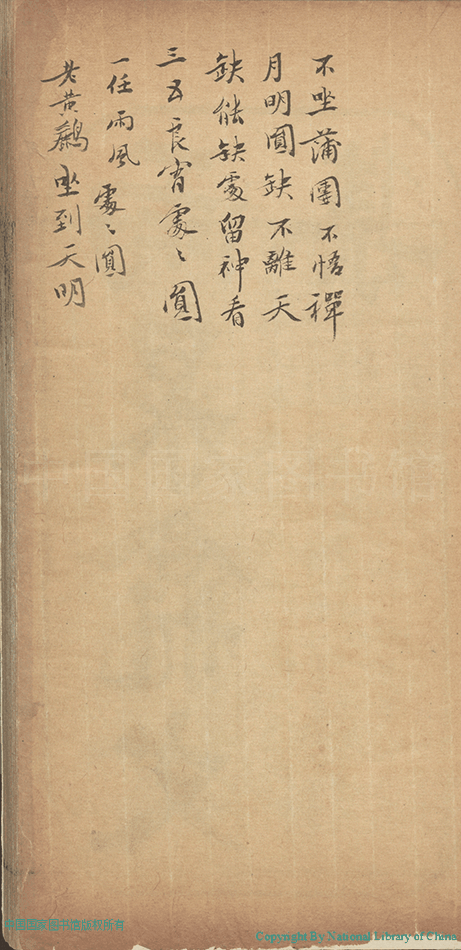 不坐蒲團不悟禪
月明圓缺不離天
缺能缺處留神看
三五良宵處〻圓
一任雨風處〻圓
老黃鸝坐到天明
中国国家图书馆
中国国家图书馆版权所有
Copyright By National Library of China